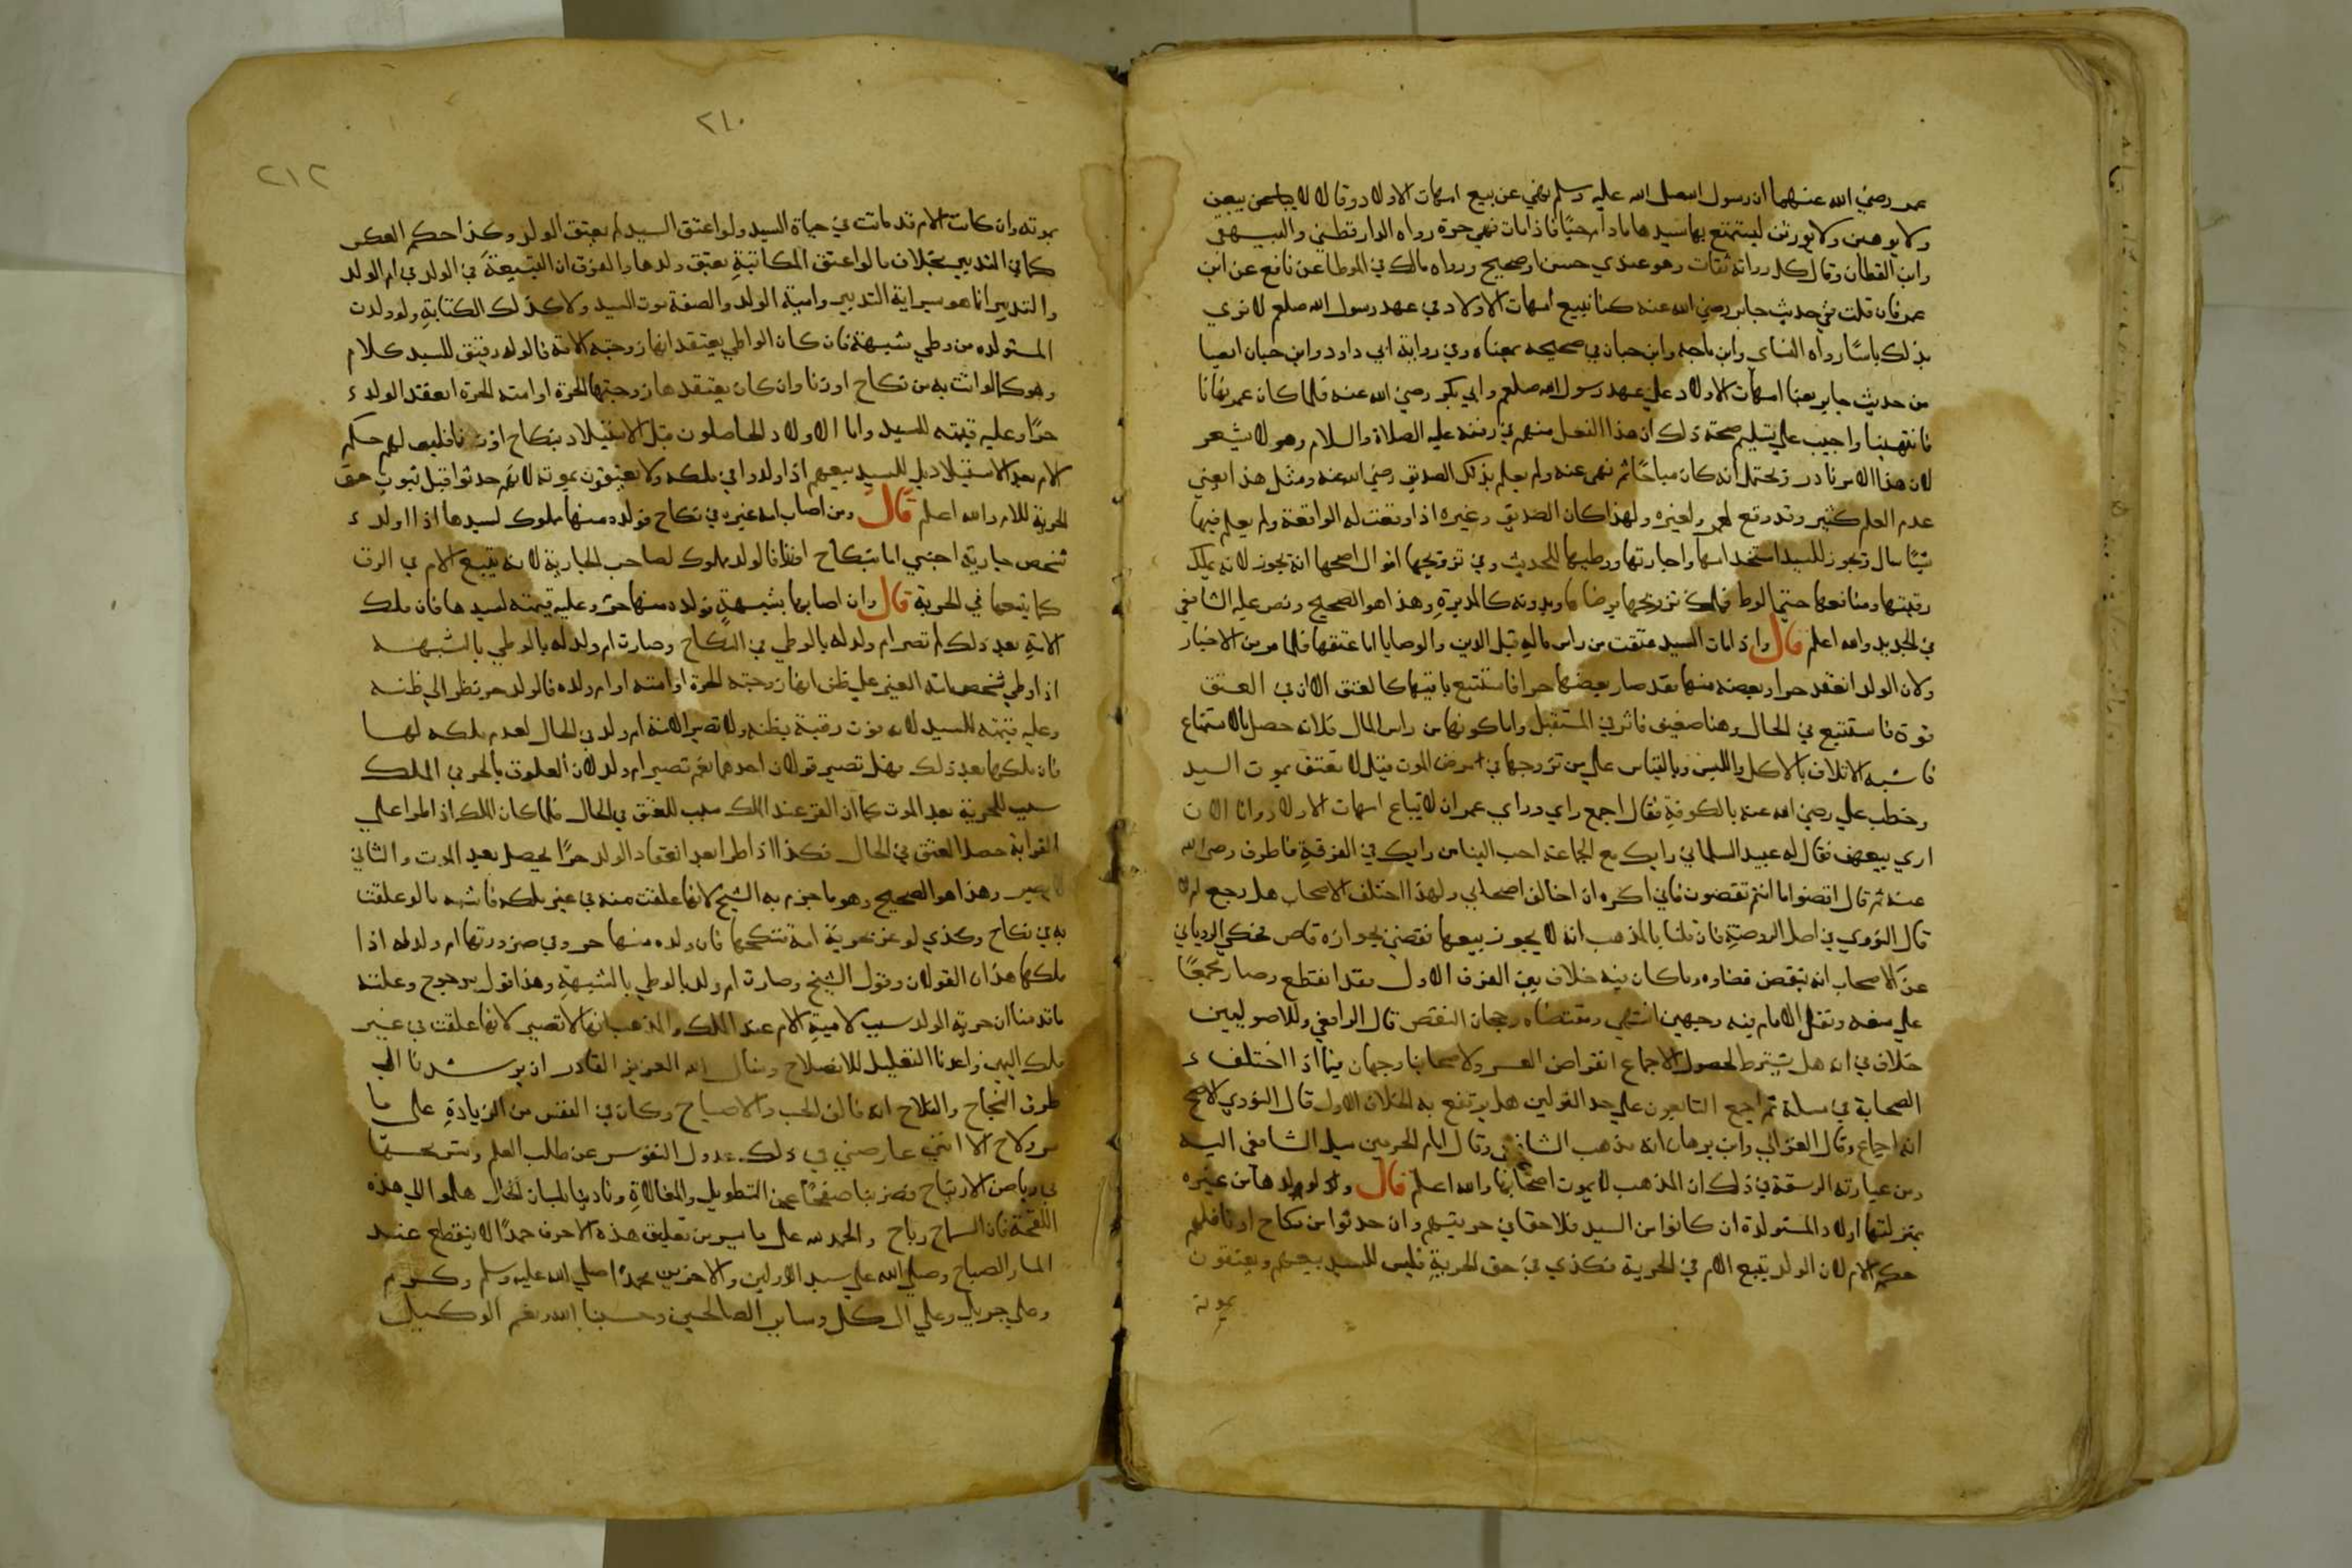 عمر رضي الله عنهما ان رسول الله صلى الله عليه وسلم نهي عن بيع امهات الاولاد وقال لا يبعن
ولا يوهبن ولا يورثن ليستمتع بها سيدها ما دام حيًا فاذا مات فهي حرة رواه الدارقطني والبيهقي
وابن القطان وقال كل رواته ثقات وهو عندي حسن او صحيح ورواه مالك في الموطا عن نافع عن ابن
عمر فان قلت في حديث جابر رضي الله عنه كنا نبيع امهات الاولاد في عهد رسول الله صلعم لا نري
بذلك باسًا رواه النساي وابن ماجه وابن حبان في صحيحه بمعناه وفي رواية ابي داود وابن حبان ايضا
من حديث جابر بعنا امهات الاولاد علي عهد رسول الله صلعم وابي بكر رضي الله عنه فلما كان عمر نهانا
فانتهينا واجيب علي تسليم صحة ذلك ان هذا الفعل منهم في زمنه عليه الصلاة والسلام وهو لا يشعر
لان هذا الامر نادر ويحتمل انه كان مباحًا ثم نهى عنه ولم يعلم بذلك الصديق رضي الله عنه ومثل هذا يعني
عدم العلم كثير وقد وقع لعمر ولغيره ولهذا كان الصديق وغيره اذا وقعت له الواقعة ولم يعلم فيها
شيًا سال ويجوز للسيد استخدامها واجارتها ووطيها للحديث وفي تزويجها اقوال اصحها انه يجوز لانه يملك
رقبتها ومنافعها حتي الوطء فملك تزويجها برضاها وبدونه كالمدبرة وهذا هو الصحيح ونص عليه الشافعي
في الجديد والله اعلم قال واذا مات السيد عتقت من راس ماله قبل الدين والوصايا اما عتقها فلما مر من الاخبار
ولان الولد انعقد حرا وبعضه منها فقد صار بعضها حرا فاستتبع باقيها كالعتق الا ان في العتق
قوة فاستتبع في الحال وهنا ضعيف فاثر في المستقبل واما كونها من راس المال فلانه حصل بالاستمتاع
فاشبه الاتلاف بالاكل واللبس وبالقياس علي من تزوجها في مرض الموت فقيل لا تعتق بموت السيد
وخطب علي رضي الله عنه بالكوفة فقال اجمع راي وراي عمر ان لا تباع امهات الاولاد وانا الان
اري بيعهن فقال له عبيد السلماني رايك مع الجماعة احب الينا من رايك في الفرقة فاطرق رضي الله
عنه ثم قال اقضوا ما انتم تقضون فاني اكره ان اخالف اصحابي ولهذا اختلف الاصحاب هل رجع ام لا
قال النووي في اصل الروضة فان قلنا بالمذهب انه لا يجوز بيعها فقضي بجوازه قاض فحكي الروياني
عن الاصحاب انه ينقض قضاوه وما كان فيه خلاف بين القرن الاول فقد انقطع وصار مجمعًا
علي منعه ونقل الامام فيه وجهين انتهي ومقتضاه رجحان النقض قال الرافعي وللاصوليين
خلاف في انه هل يشترط لحصول الاجماع انقراض العصر ولاصحابنا وجهان فيما اذا اختلف
الصحابة في مسلة ثم اجمع التابعون علي احد القولين هل يرتفع به الخلاف الاول قال النووي الاصح
انه اجماع وقال الغزالي وابن برهان انه مذهب الشافعي وقال امام الحرمين ميل الشافعي اليه
ومن عباراته الرشيقة في ذلك ان المذهب لا يموت اصحابها والله اعلم قال واولادها من غيره
بمنزلتها اولاد المستولدة ان كانوا من السيد فلا خفا في حريتهم وان حدثوا من نكاح او زنا فلهم
حكم الام لان الولد يتبع الام في الحرية فكذي في حق الحرية فليس للسيد بيعهم ويعتقون
بموته
٢١٠
٢١٢
بموته وان كانت الام قد ماتت في حياة السيد ولو اعتق السيد لم يعتق الولد وكذا حكم العكس
كما في التدبير بخلاف ما لو اعتق المكاتبة يعتق ولدها والفرق ان التبعية في الولد في ام الولد
والتدبير انما هو سراية التدبير وامية الولد والصفة موت السيد ولا كذلك الكتابة ولو ولدت
المستولده من وطي شبهة فان كان الواطي يعتقد انها زوجته الامة فالولد رقيق للسيد كلام
وهو كما لو اتت به من نكاح او زنا وان كان يعتقدها زوجته الحرة او امته الحرة انعقد الولد
حرًا وعليه قيمته للسيد واما الاولاد الحاصلون قبل الاستيلاد بنكاح او زنا فليس لهم حكم
الام بعد الاستيلاد بل للسيد بيعهم اذا ولدوا في ملكه ولا يعتقون بموته لانهم حدثوا قبل ثبوت حق
الحرية للام والله اعلم قال ومن اصاب امة غيره في نكاح فولده منها مملوك لسيدها اذا اولد
شخص جارية اجنبي اما بنكاح او زنا فالولد مملوك لصاحب الجارية لانه يتبع الام في الرق
كما يتبعها في الحرية قال وان اصابها بشبهة فولده منها حر وعليه قيمته لسيدها فان ملك
الامة بعد ذلك لم تصر ام ولد له بالوطي في النكاح وصارت ام ولد له بالوطي بالشبهه
اذا وطي شخص امة الغير علي ظن انها زوجته الحرة او امته او ام ولده فالولد حر نظرا الي ظنه
وعليه قيمته للسيد لانه فوت رقبة بظنه ولا تصير الامة ام ولد في الحال لعدم ملكه لها
فان ملكها بعد ذلك فهل تصير قولان احدهما نعم تصير ام ولد لان العلوق بالحر في الملك
سبب للحرية بعد الموت كما ان القرعند الملك سبب للعتق في الحال فلما كان الملك اذا طرا علي
القرابة حصل العتق في الحال فكذا اذا طرا بعد انعقاد الولد حرًا يحصل بعد الموت والثاني
لا تصير وهذا هو الصحيح وهو ما جزم به الشيخ لانها علقت منه في غير ملكه فاشبه ما لو علقت
به في نكاح وكذي لو غر بحرية امة فنكحها فان ولده منها حر وفي صيرورتها ام ولد له اذا
ملكها هذان القولان وقول الشيخ وصارت ام ولد بالوطي بالشبهة وهذا قول مرجوح وعلته
ما قدمنا ان حرية الولد سبب لامية الام عند الملك والمذهب انها لا تصير لانها علقت في غير
ملك اليمين واعرنا التعليل للايضاح ونسال الله العزيز القادر ان يرشدنا الي
طرق النجاح والفلاح انه فالق الحب والاصباح وكان في النفس من الزيادة علي ما
مر ولاح الا انني عارضني في ذلك عدول النفوس عن طلب العلم وتسريحها
في رياض الارتياح فضربنا صفحًا عن التطويل والمغالاة ونادينا بلسان الحال هلموا الي هذه
اللقحة فان السماح رباح والحمد لله علي ما يسر من تعليق هذه الاحرف حمدًا لا ينقطع عند
المسا والصباح وصلي الله علي سيد الاولين والاخرين محمد صلي الله عليه وسلم وكرم
وعلي جبريل وعلي ال كل وساير الصالحين وحسبنا الله ونعم الوكيل